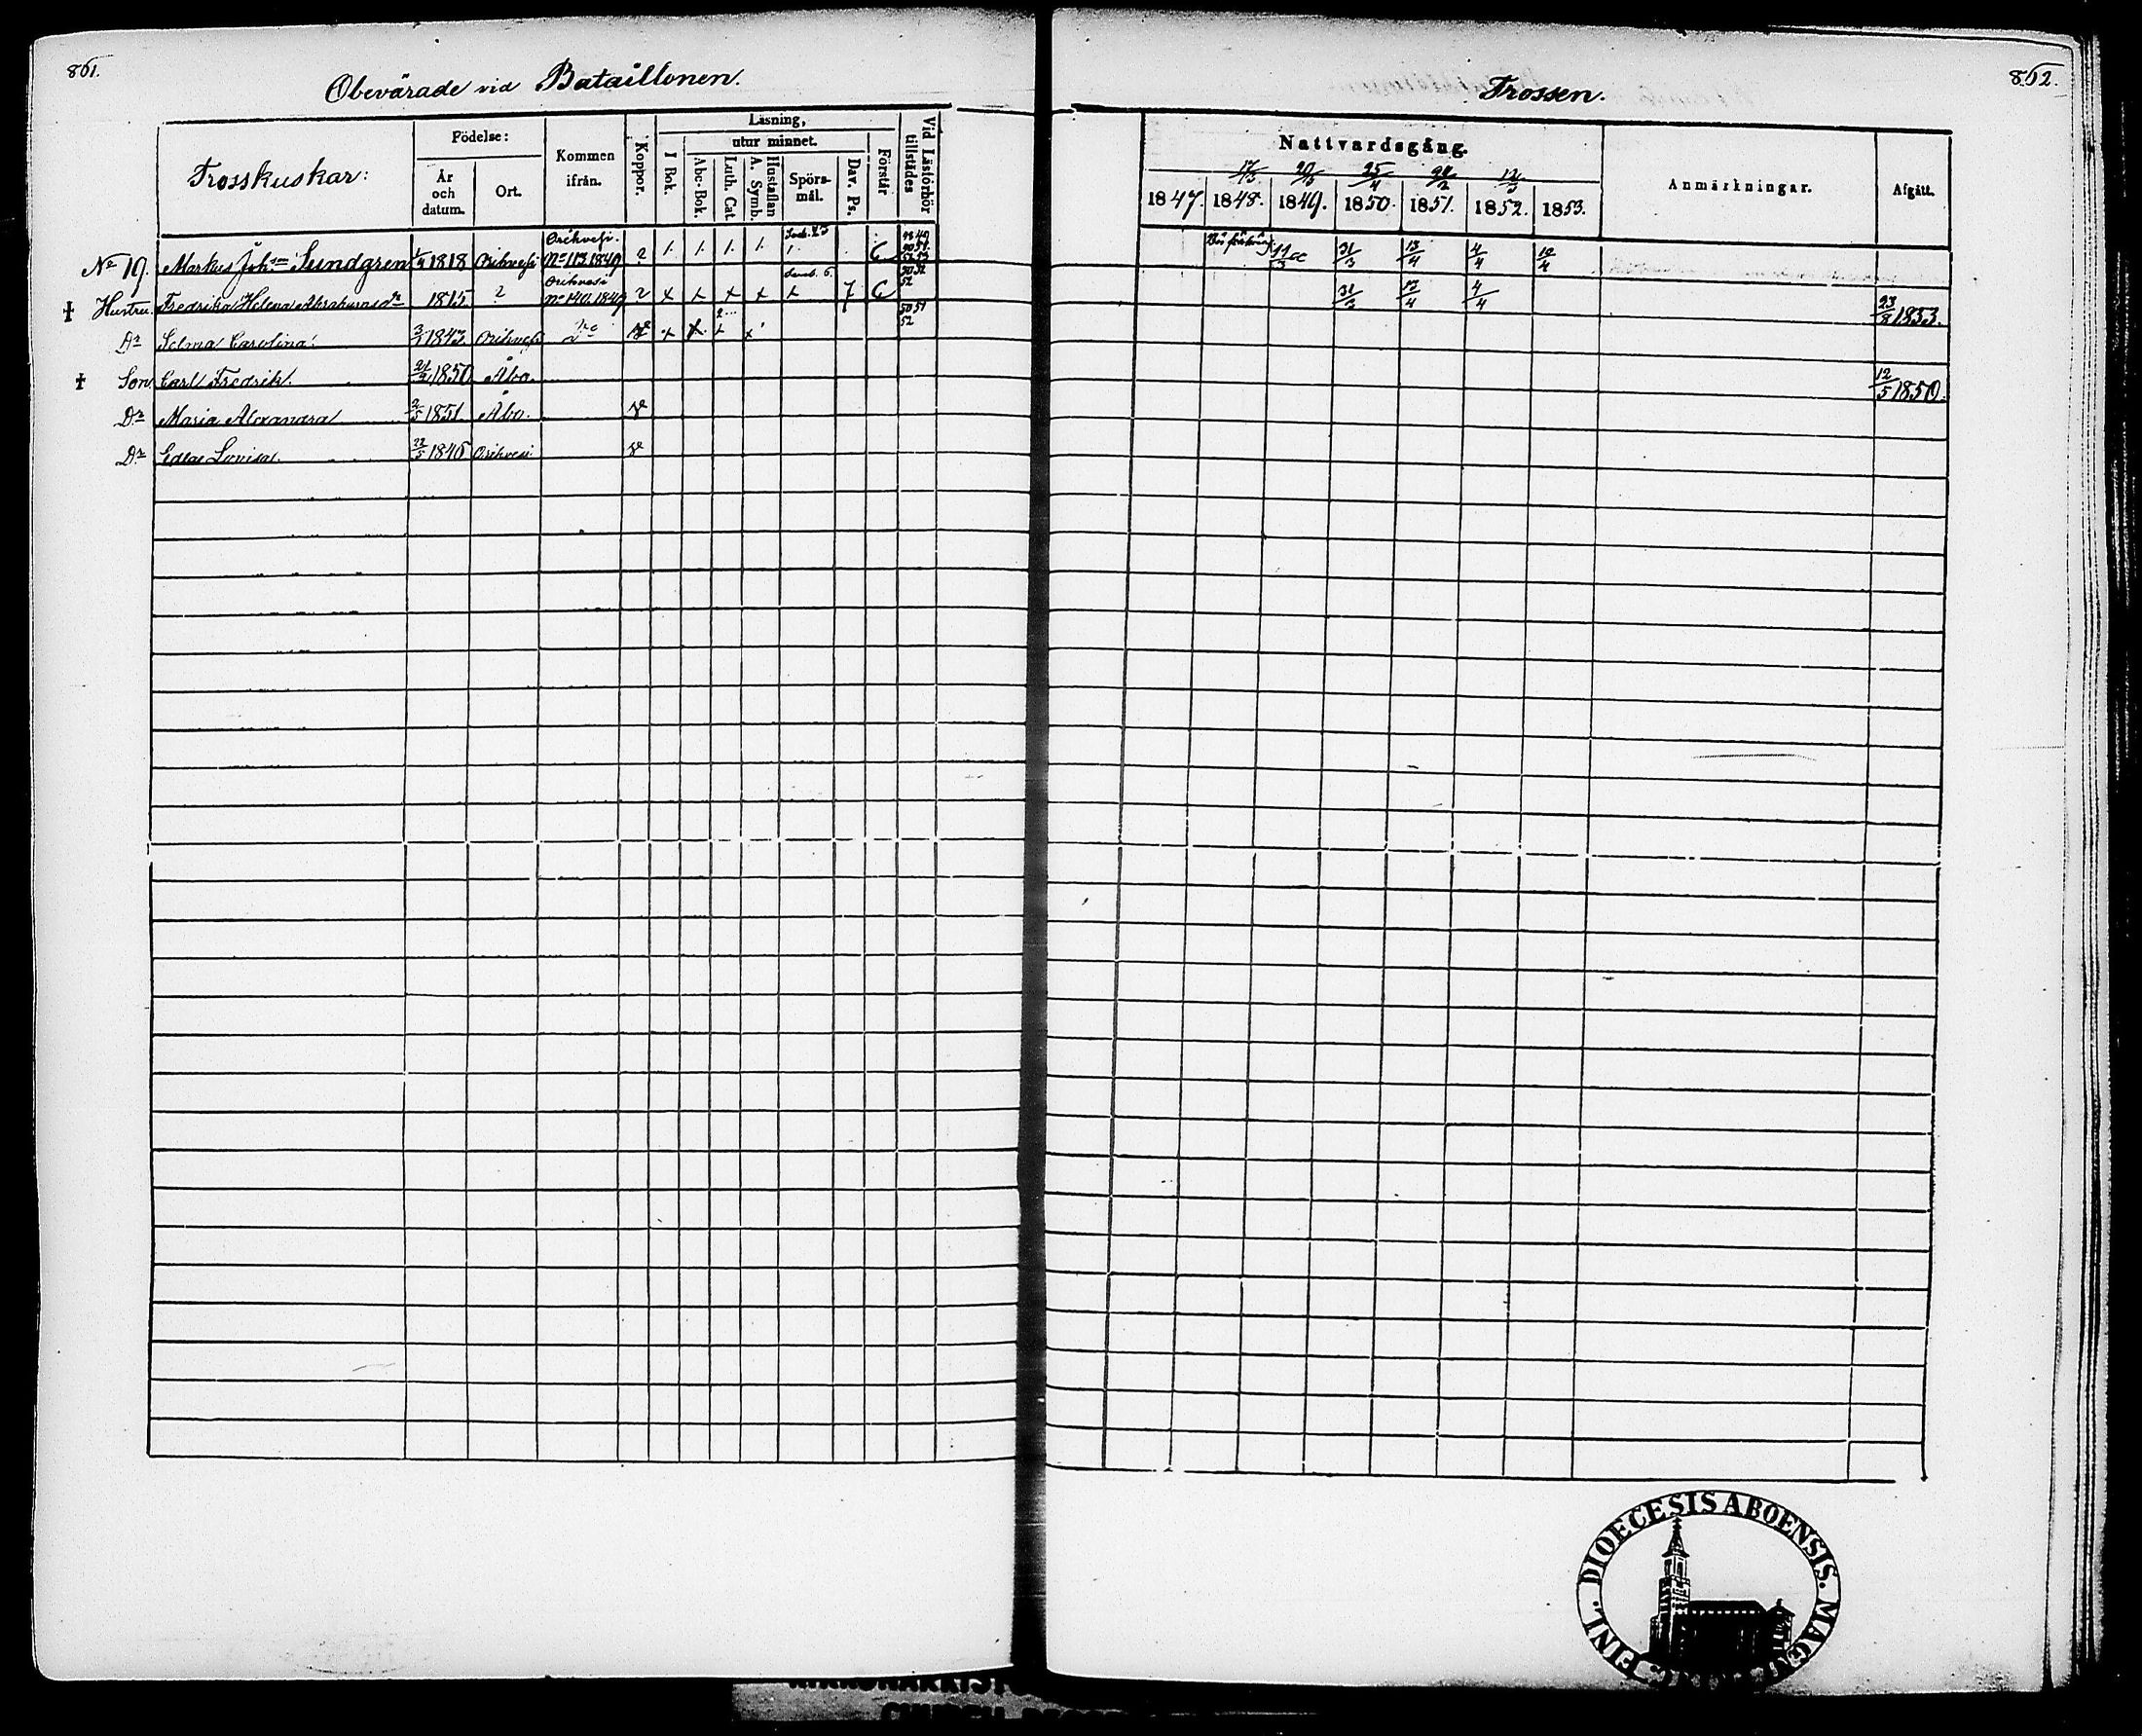 861.
Obevärade vid Bataillonen.
Trosskuskar:
Födelse:
År och datum.
Ort.
Kommen ifrån.
Koppor.
Läsning,
I Bok.
utur minnet.
Abc-Bok.
Luth. Cat.
Hustaflan A. Symb.
Spörs-mål.
Dav. Ps.
Förstår
Vid Läsförhör tillstädes
No 19. Markus Joh:son Sundgren 1818 Orihvesi Orihvesi. No 113.1849 2 1. 1. 1. 1. 1. C
† Hustru. Fredrika Helena Abrahamsdr 1815 2 Orihvesi No 140.1849 2 x x x x x 7 C
Dr Selma Carolina. 3/3 1843 Orihvesi
† Son Carl Fredrik. 1850 Åbo.
Dr Maria Alexandra 2/5 1851 Åbo.
Dr Edla Lovisa. 1846 Orihvesi
862.
Trossen.
Nattvardsgång.
17/3 20/3 25/4
1847. 1848. 1849. 1850. 1851. 1852. 1853.
Anmärkningar.
Afgått.
31/3 13/4 4/4 10/4
31/3 13/4 4/4 23/8 1853.
12/5 1850.
FINL. DIOECESIS ABOENSIS.